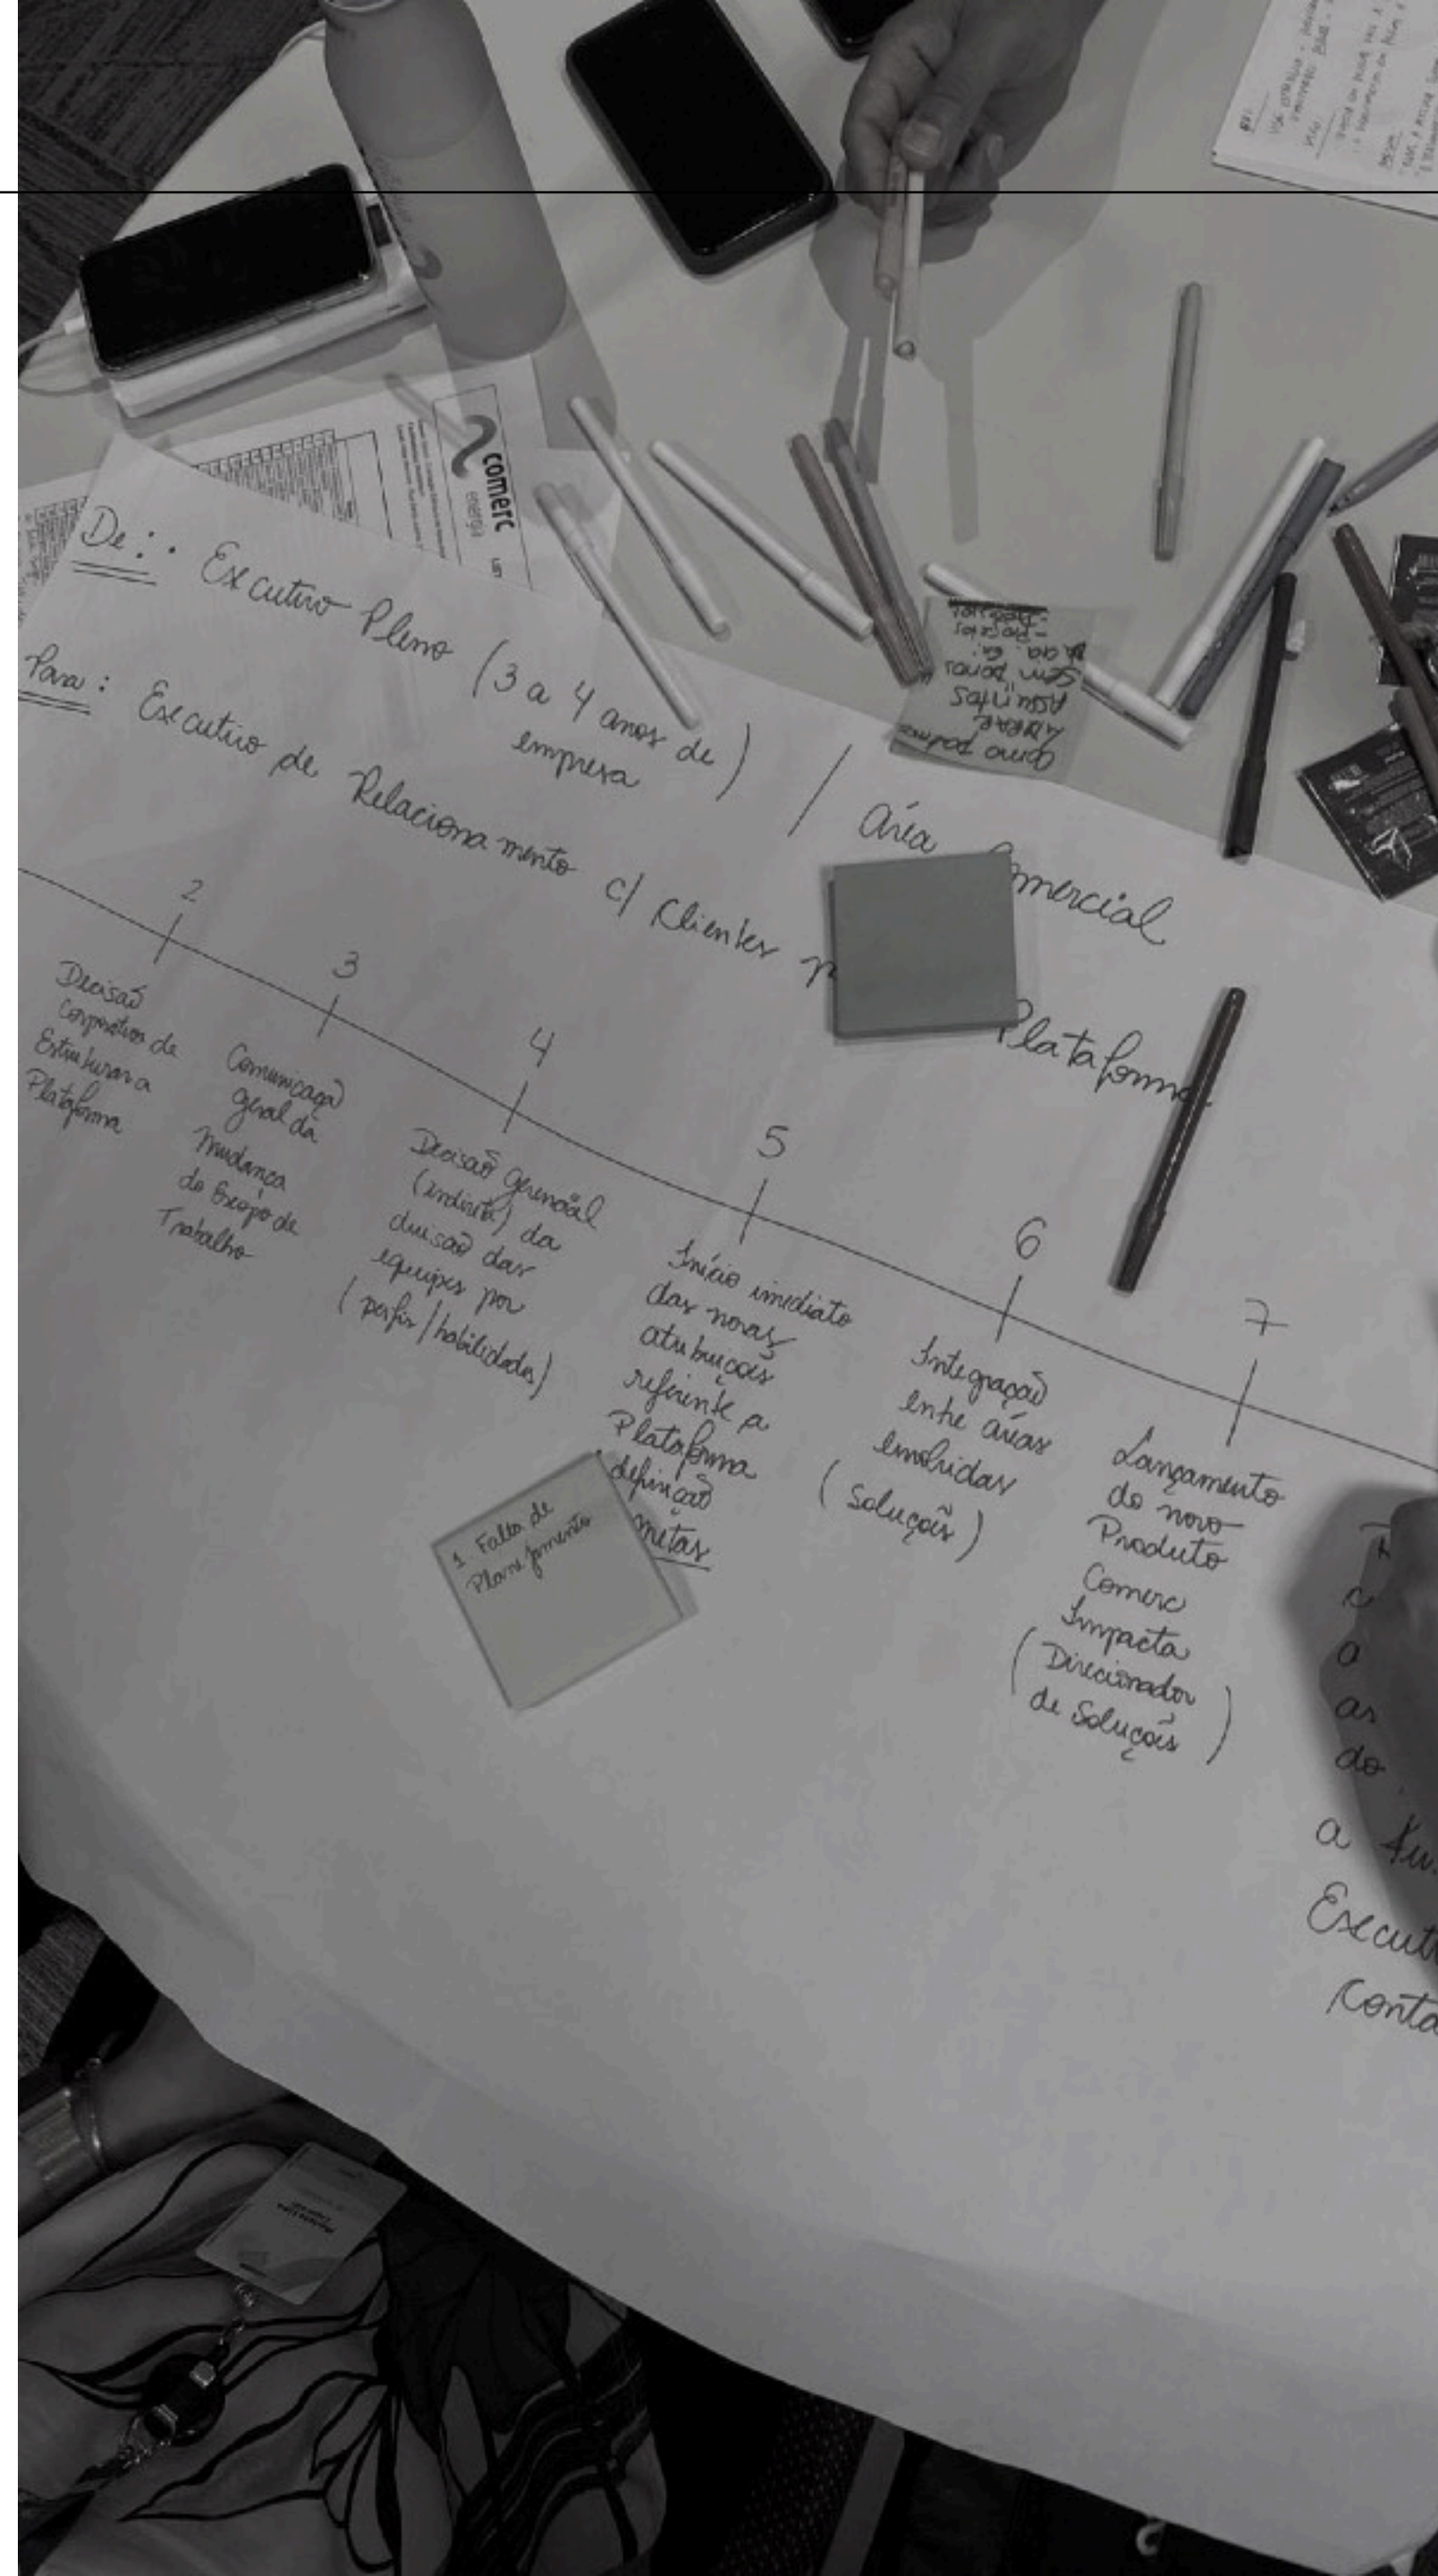 comerc
energia
De: . Executivo Pleno (3 a 4 anos de
empresa )
/ Área
mercial
Para: Executivo de Relacionamento c/ Clientes
Plataforma
2
Decisão
Corporativa de
Estruturar a
Plataforma
3
Comunicação
geral da
mudança
do Escopo de
Trabalho
4
Decisão gerencial
(indireta) da
divisão das
equipes por
(perfis/habilidades)
5
Início imediato
das novas
atribuições
referente a
Plataforma
definição
metas
6
Integração
entre áreas
envolvidas
(Soluções)
7
Lançamento
do novo
Produto
Comerc
Impacta
(Direcionador
de Soluções)
1 Falta de
Planejamento
como podemos
ABORDAR
ASSUNTOS
Sem
- Projetos
c
a
as
do
a
Execut
Conta